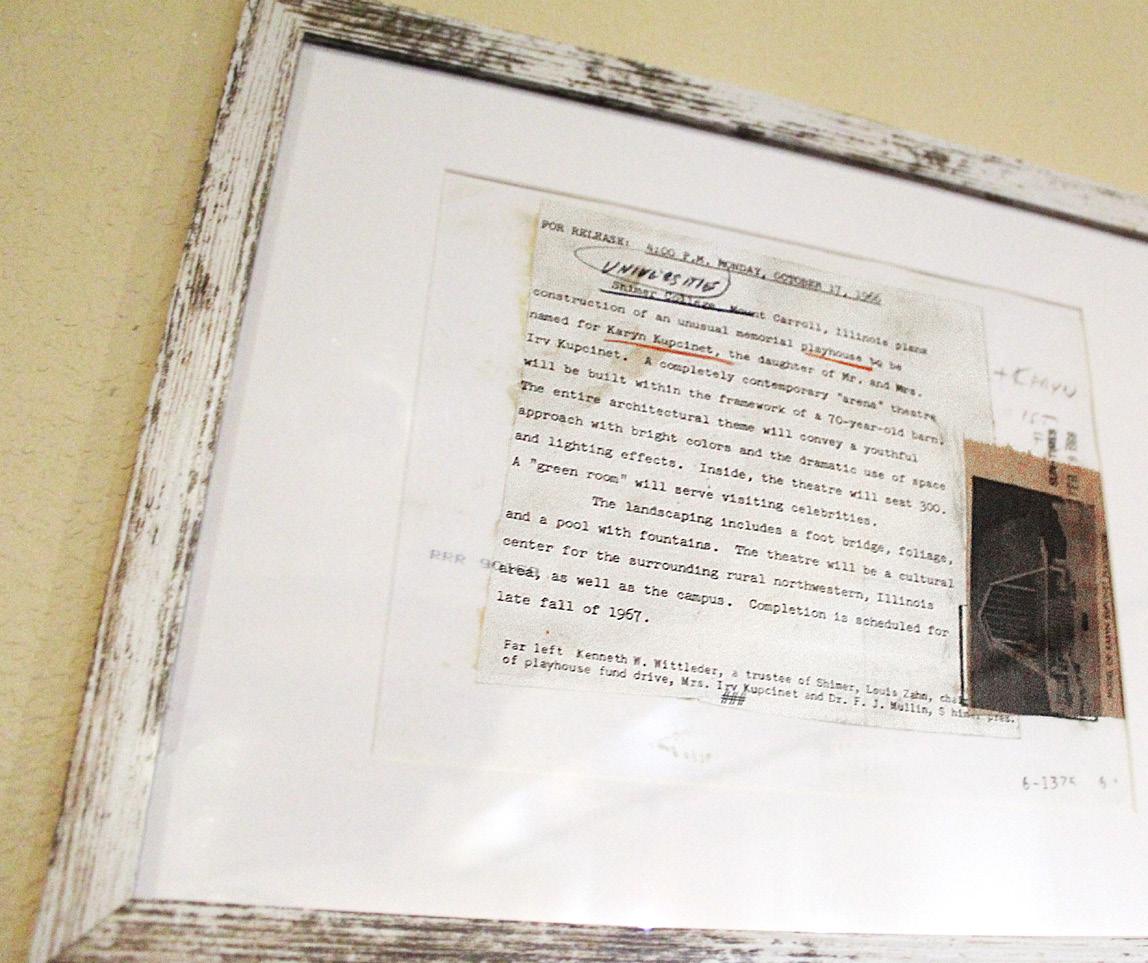 FOR RELEASE: 4:00 P.M. MONDAY, OCTOBER 17, 1966
UNIVERSITIES
Shimer College, Mount Carroll, Illinois plans
construction of an unusual memorial playhouse to be
named for Karyn Kupcinet, the daughter of Mr. and Mrs.
Irv Kupcinet. A completely contemporary "arena" theatre
will be built within the framework of a 70-year-old barn.
The entire architectural theme will convey a youthful
approach with bright colors and the dramatic use of space
and lighting effects. Inside, the theatre will seat 300.
A "green room" will serve visiting celebrities.
The landscaping includes a foot bridge, foliage,
and a pool with fountains. The theatre will be a cultural
center for the surrounding rural northwestern, Illinois
area, as well as the campus. Completion is scheduled for
late fall of 1967.
Far left Kenneth W. Wittleder, a trustee of Shimer, Louis Zahn, chai
of playhouse fund drive, Mrs. Irv Kupcinet and Dr. F. J. Mullin, Shimer pres.
###
+ KARYN
SUN-TIMES
FEB
RRR
6-1375